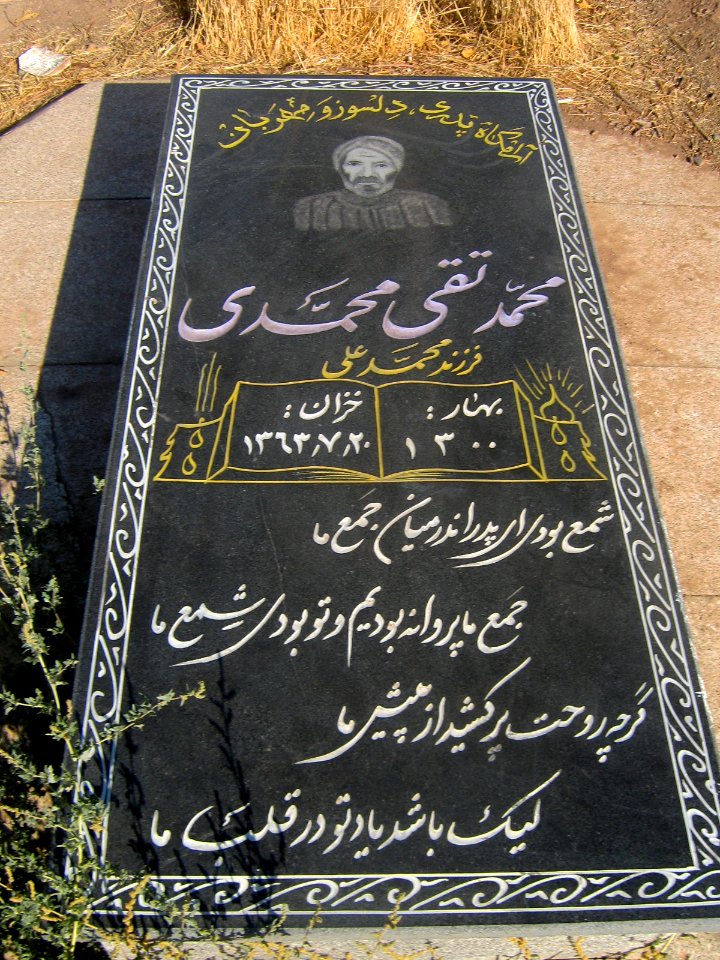 آرامگاه پدری، دلسوز و مهربان
محمّد تقی محمّدی
فرزند محمّد علی
بهار :
۱۳۰۰
خزان :
۱۳۶۳/۷/۲۰
شمع بودی ای پدر اندر میان جَمع ما
جَمع ما پروانه بودیم و تو بودی شِمع ما
گرچه روحت پر کشید از پیش ما
لیک باشد یاد تو در قلب ما